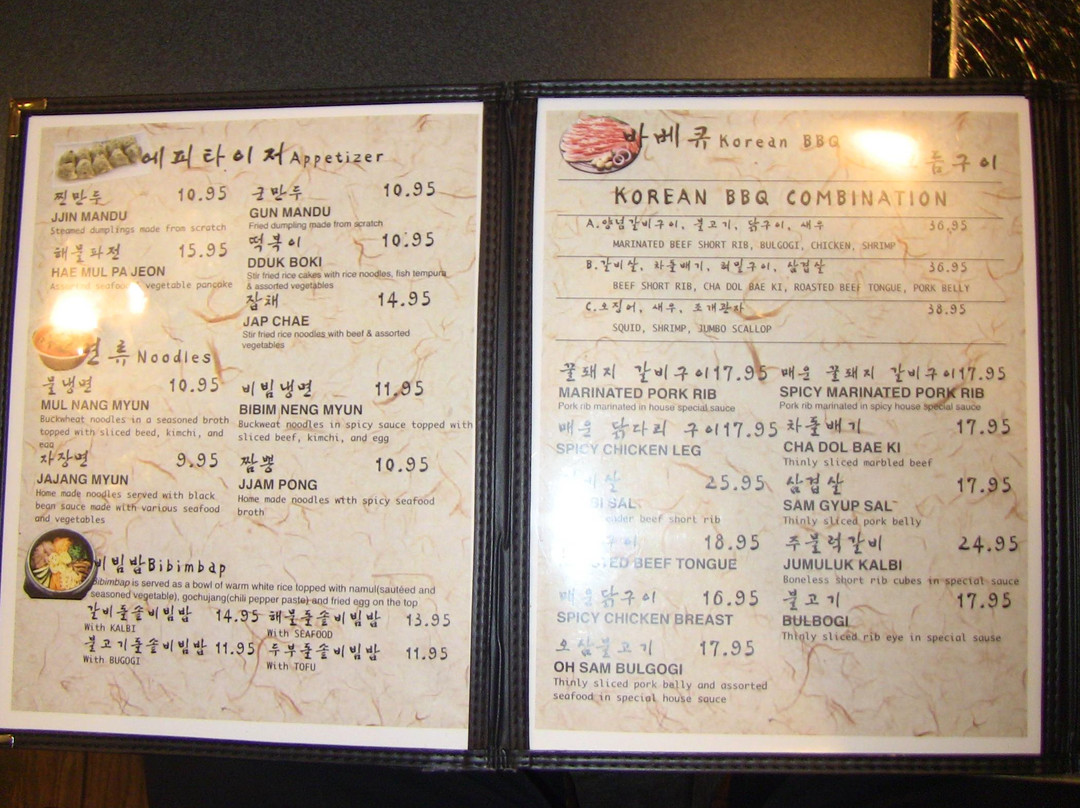 에피타이저 Appetizer
찐만두 10.95
JJIN MANDU
Steamed dumplings made from scratch
해물파전 15.95
HAE MUL PA JEON
Assorted seafood vegetable pancake
군만두 10.95
GUN MANDU
Fried dumpling made from scratch
떡볶이 10.95
DDUK BOKI
Stir fried rice cakes with rice noodles, fish tempura
& assorted vegetables
잡채 14.95
JAP CHAE
Stir fried rice noodles with beef & assorted
vegetables
면류 Noodles
물냉면 10.95
MUL NANG MYUN
Buckwheat noodles in a seasoned broth
topped with sliced beed, kimchi, and
egg
자장면 9.95
JAJANG MYUN
Home made noodles served with black
bean sauce made with various seafood
and vegetables
비빔냉면 11.95
BIBIM NENG MYUN
Buckweat noodles in spicy sauce topped with
sliced beef, kimchi, and egg
짬뽕 10.95
JJAM PONG
Home made noodles wtth spicy seafood
broth
비빔밥 Bibimbap
Bibimbap is served as a bowl of warm white rice topped with namul(sautéed and
seasoned vegetable), gochujang(chili pepper paste) and fried egg on the top
갈비돌솥비빔밥 14.95 해물돌솥비빔밥 13.95
With KALBI With SEAFOOD
불고기돌솥비빔밥 11.95 두부돌솥비빔밥 11.95
With BUGOGI With TOFU
바베큐 Korean BBQ
름구이
KOREAN BBQ COMBINATION
A.양념갈비구이, 불고기, 닭구이, 새우 36.95
MARINATED BEEF SHORT RIB, BULGOGI, CHICKEN, SHRIMP
B.갈비살, 차돌배기, 혀밑구이, 삼겹살 36.95
BEEF SHORT RIB, CHA DOL BAE KI, ROASTED BEEF TONGUE, PORK BELLY
C.오징어, 새우, 조개관자 38.95
SQUID, SHRIMP, JUMBO SCALLOP
꿀돼지 갈비구이 17.95
MARINATED PORK RIB
Pork rib marinated in house special sauce
매운 닭다리 구이 17.95
SPICY CHICKEN LEG
살 25.95
SAL
beef short rib
구이 18.95
BEEF TONGUE
매운닭구이 16.95
SPICY CHICKEN BREAST
오삼불고기 17.95
OH SAM BULGOGI
Thinly sliced pork belly and assorted
seafood in special house sauce
매운 꿀돼지 갈비구이 17.95
SPICY MARINATED PORK RIB
Pork rib marinated in spicy house special sauce
차돌배기 17.95
CHA DOL BAE KI
Thinly sliced marbled beef
삼겹살 17.95
SAM GYUP SAL
Thinly sliced pork belly
주물럭갈비 24.95
JUMULUK KALBI
Boneless short rib cubes in special sauce
불고기 17.95
BULBOGI
Thinly sliced rib eye in special sause